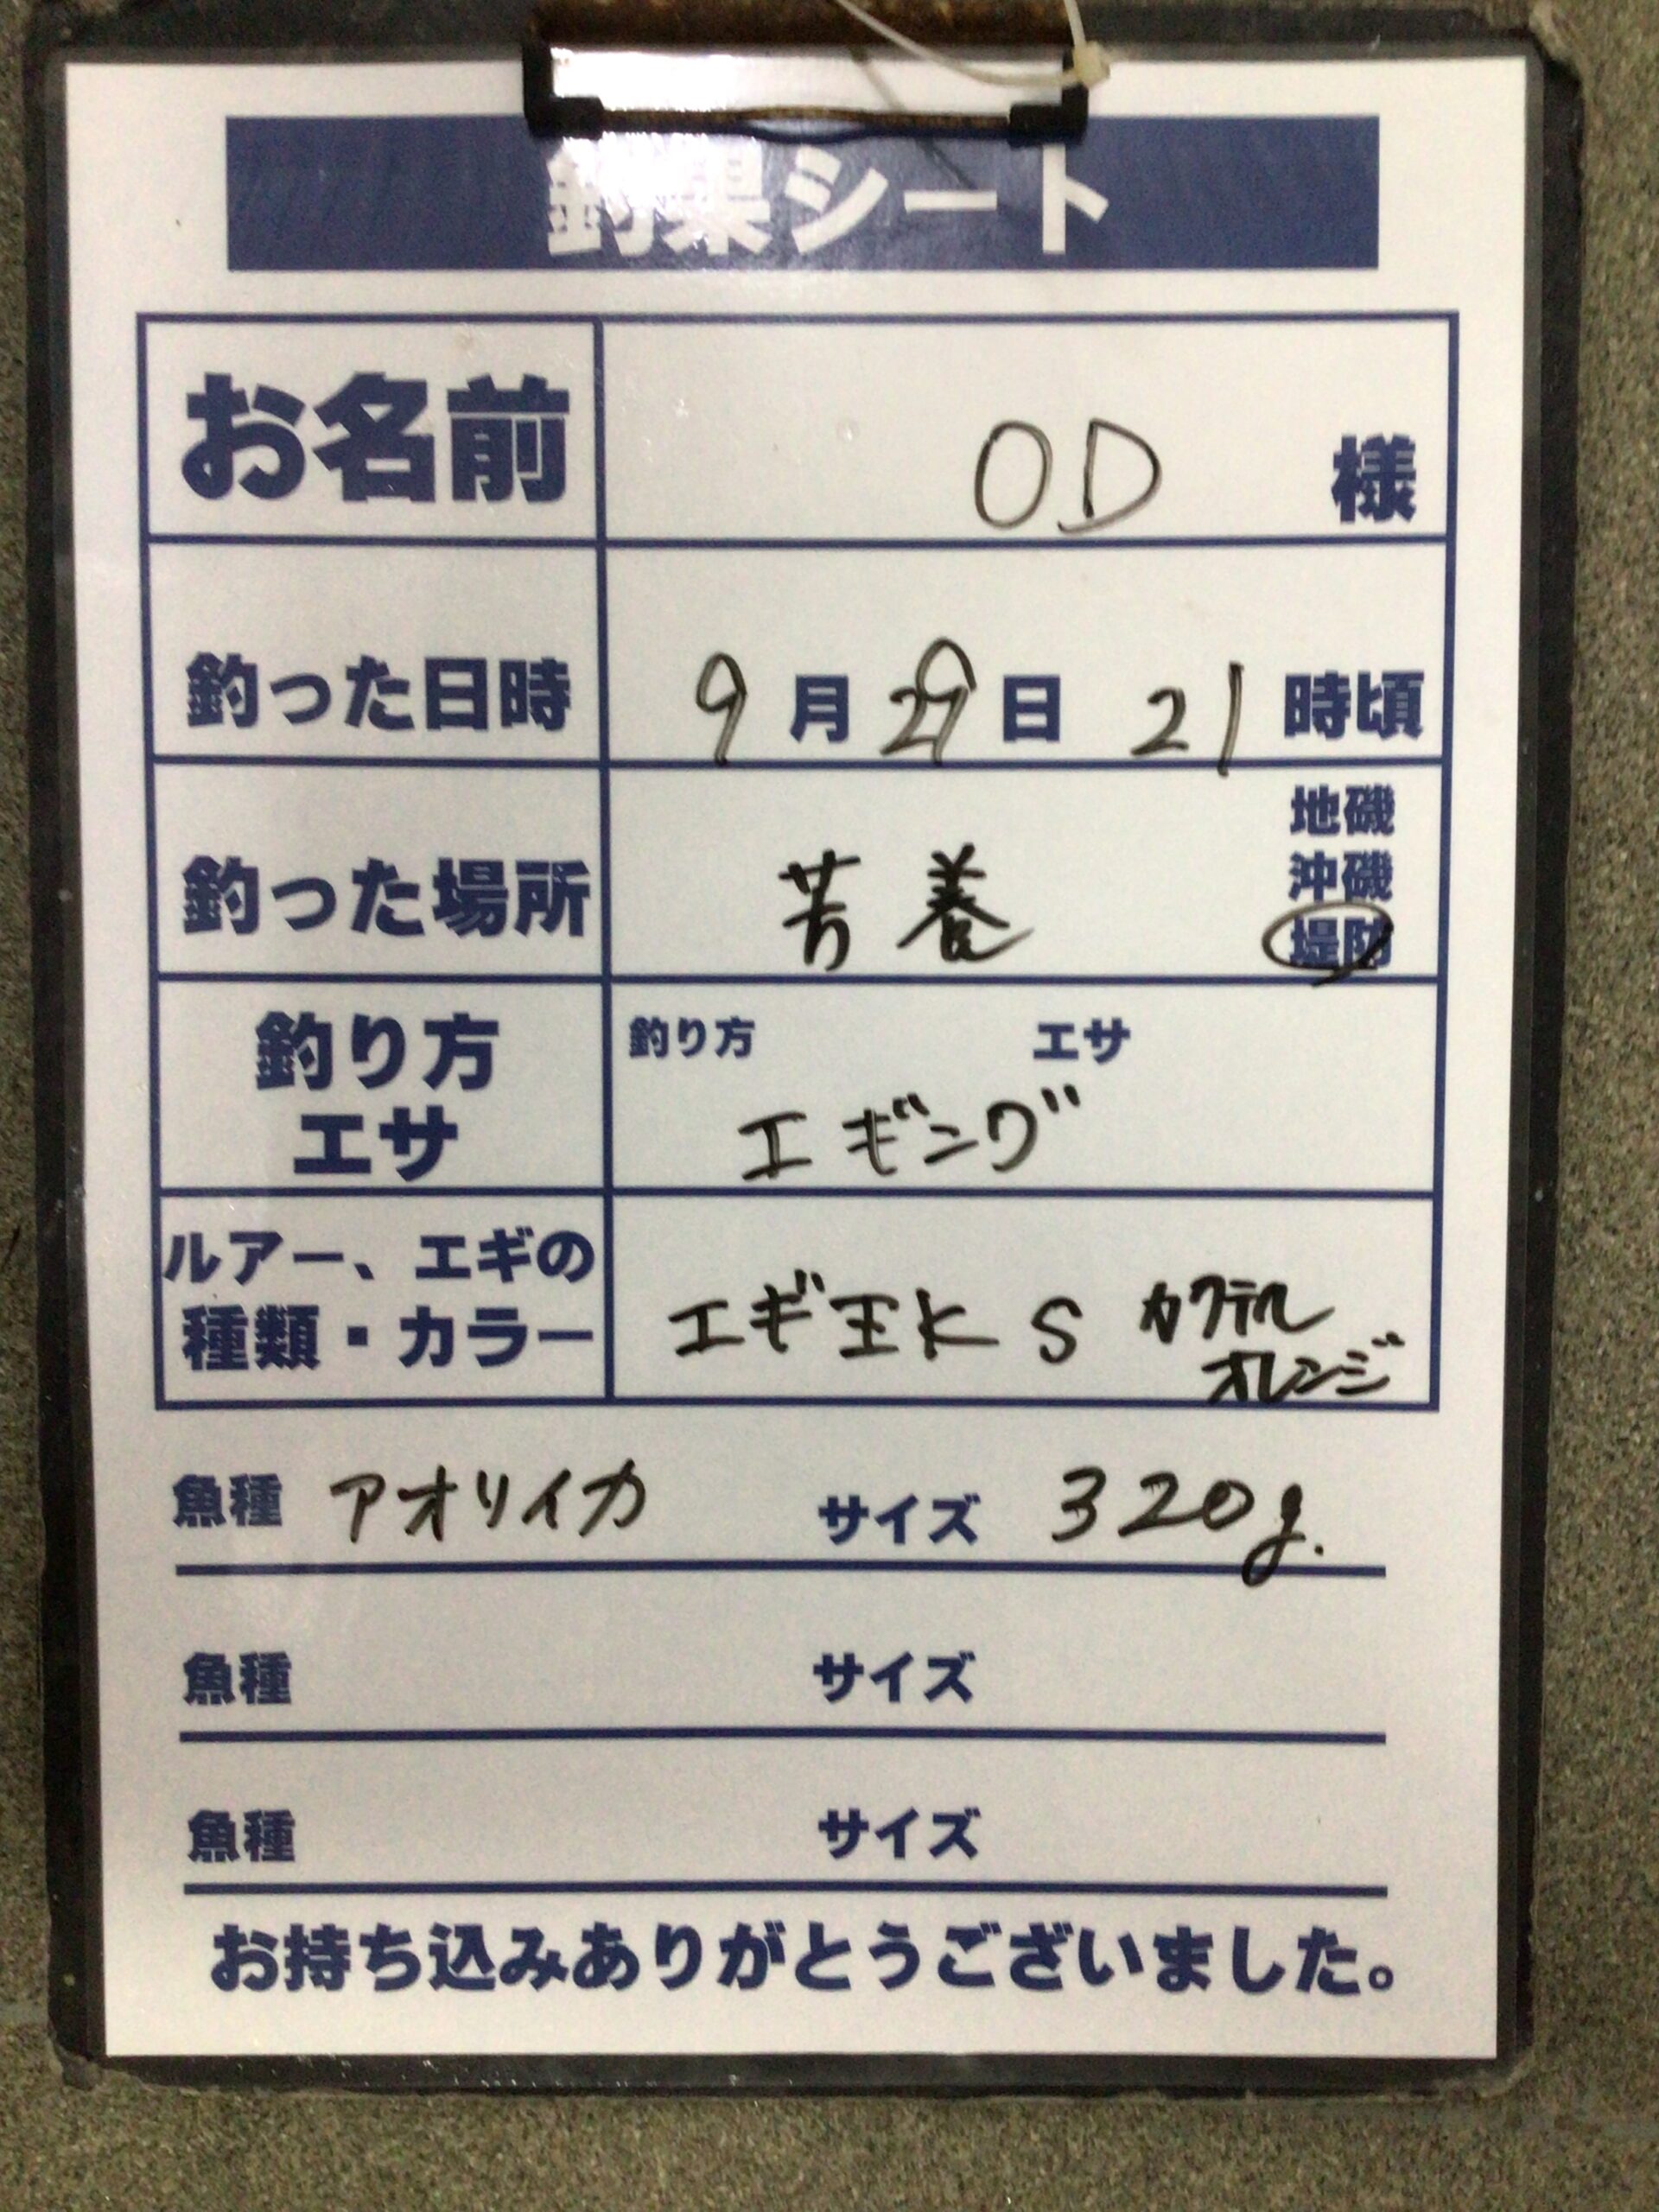 釣果シート
お名前 OD 様
釣った日時 9月29日 21時頃
釣った場所 芳養 地磯
沖磯
堤防
釣り方
エサ
釣り方 エサ
エギング
ルアー、エギの
種類・カラー
エギ王K S カクテル
オレンジ
魚種 アオリイカ サイズ 320g.
魚種 サイズ
魚種 サイズ
お持ち込みありがとうございました。